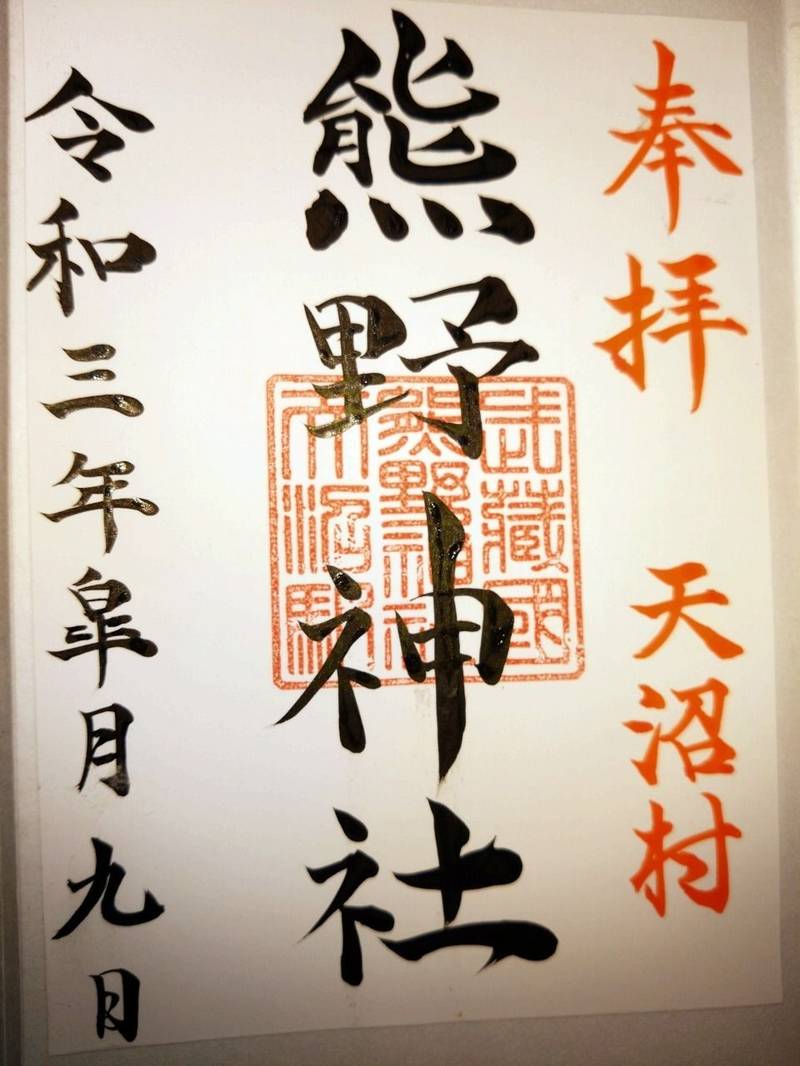 奉拝　天沼村
熊野神社
武蔵國
熊野神社
天沼騨
令和三年皐月九日